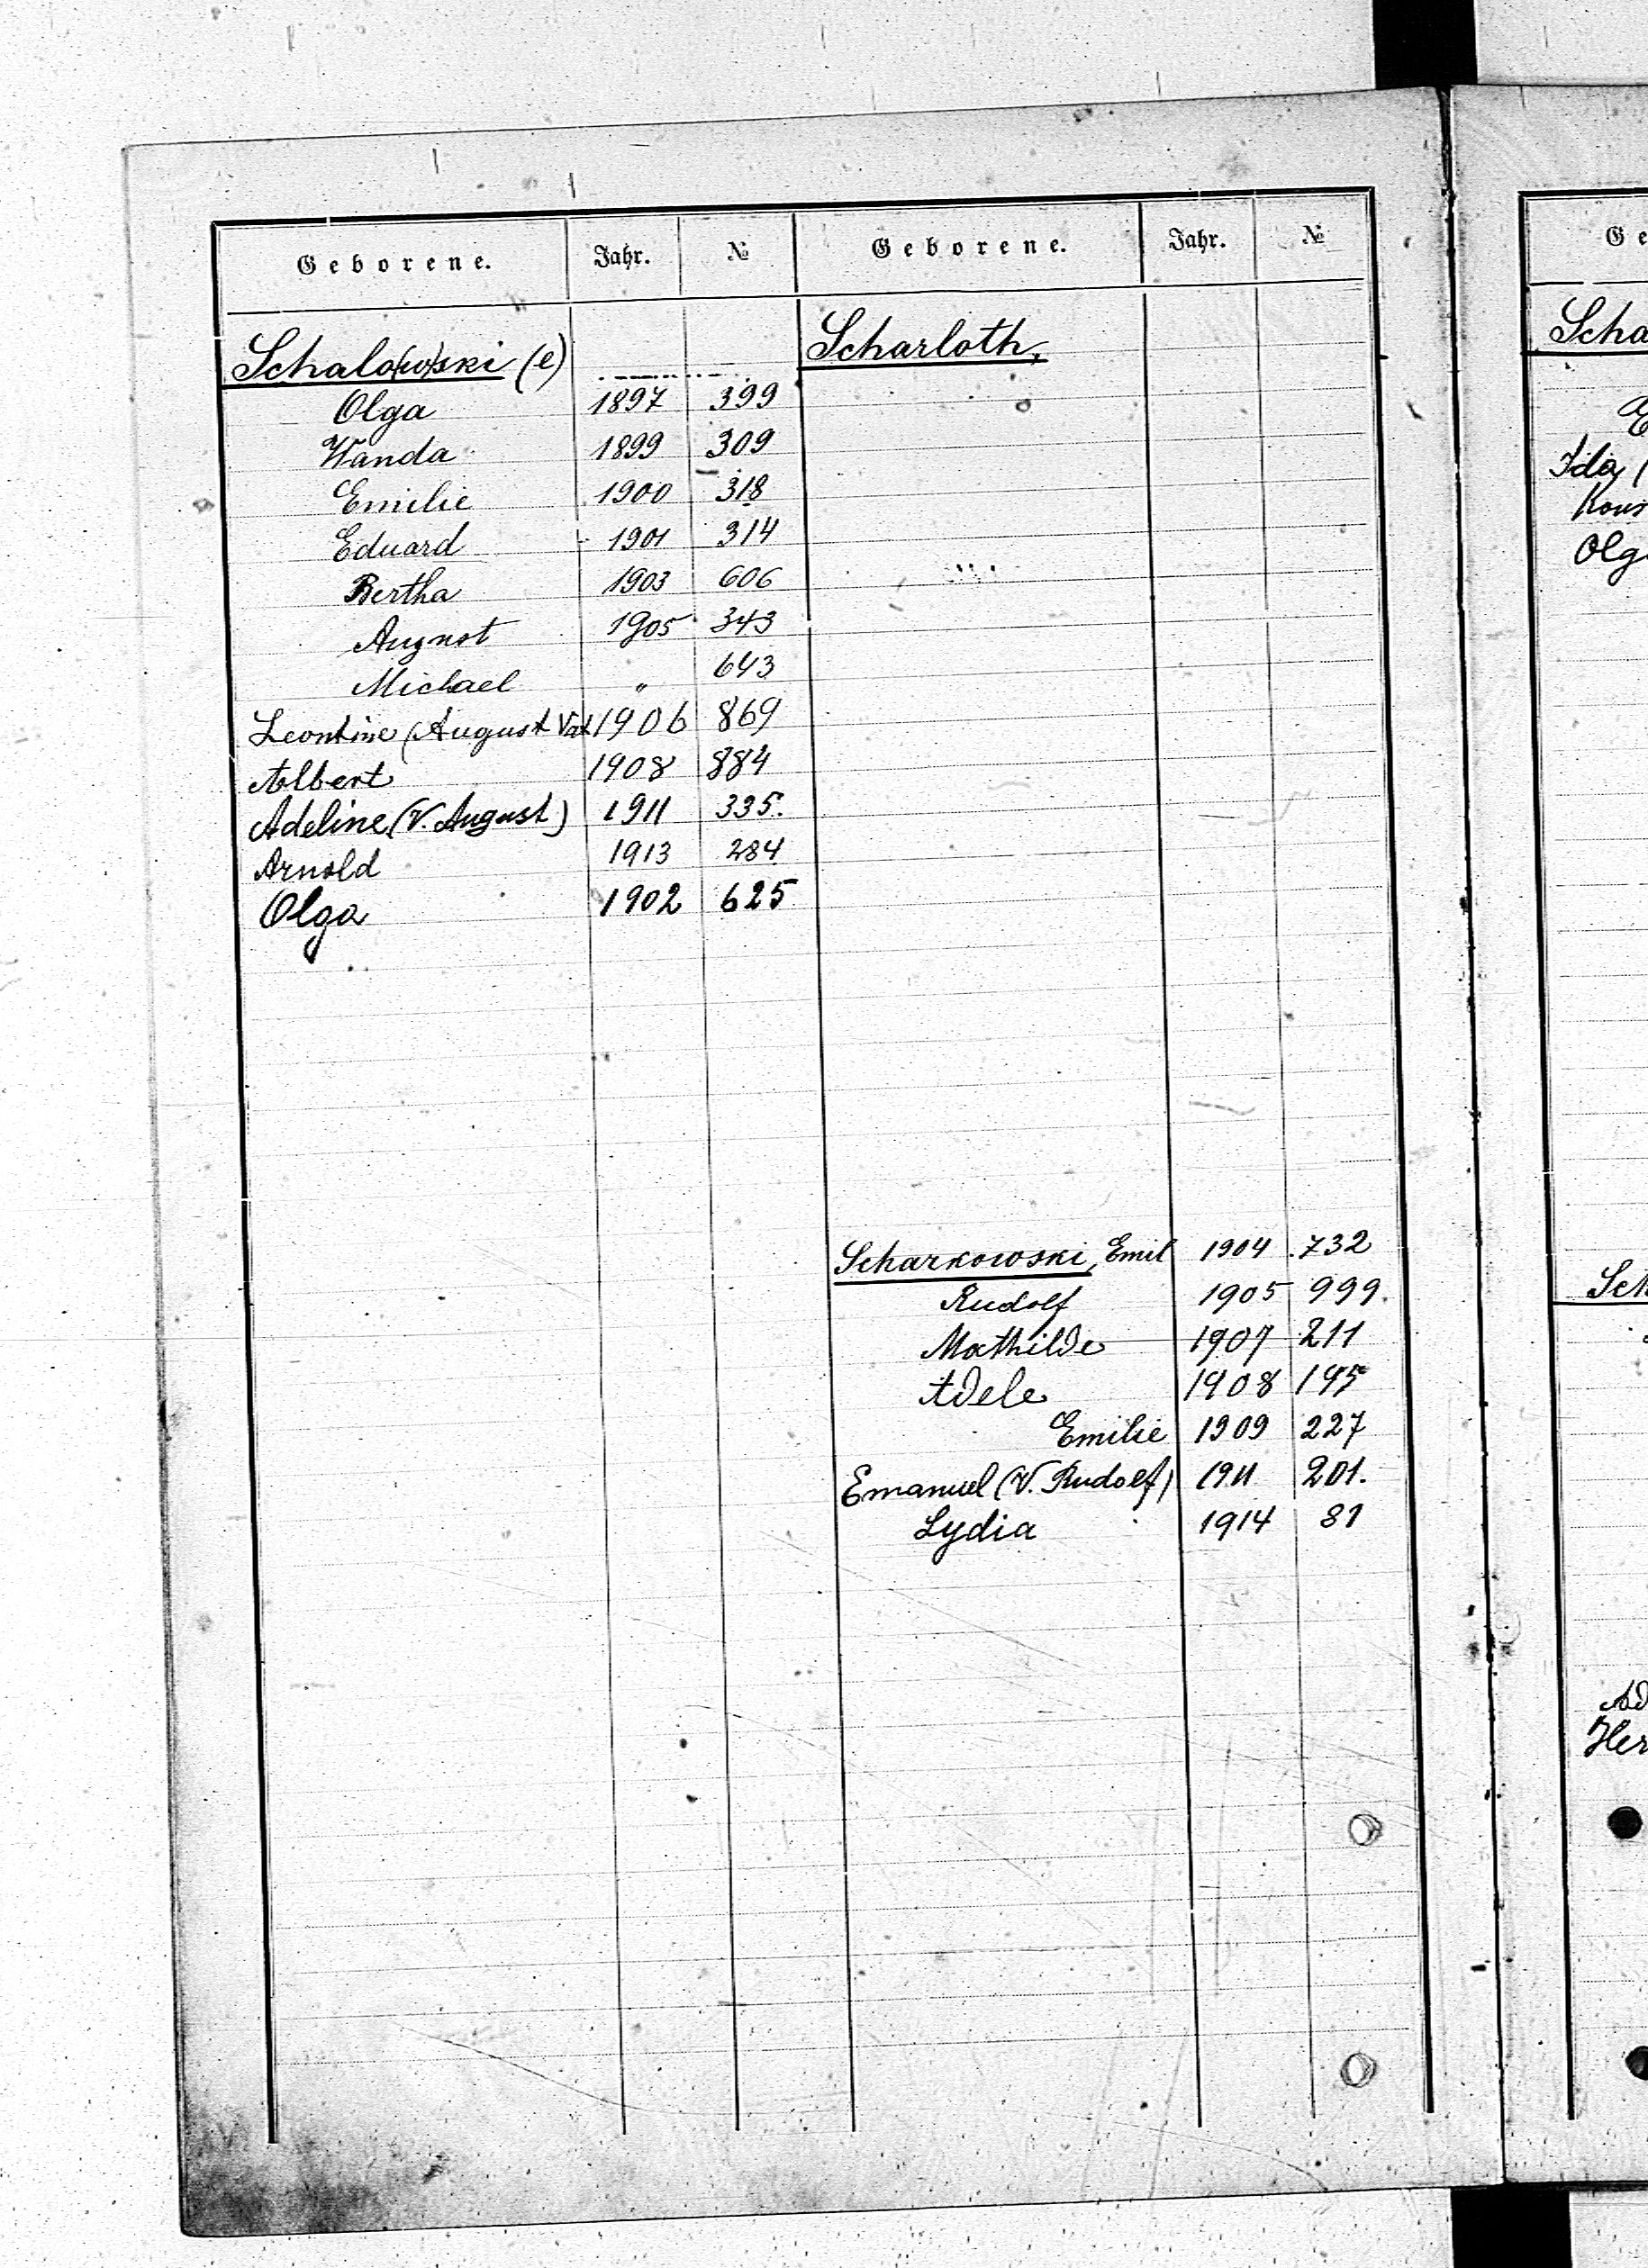 Geborene. Jahr. № Geborene. Jahr. №
Schalo(w)ski (e)
Olga 1897 399
Wanda 1899 309
Emilie 1900 318
Eduard 1901 314
Bertha 1903 606
August 1905 343
Michael " 643
Leontine (August Vat 1906 869
Albert 1908 884
Adeline (V. August) 1911 335.
Arnold 1913 284
Olga 1902 625
Scharloth,
Scharkowski, Emil 1904 732
Rudolf 1905 999.
Mathilde 1907 211
Adele 1908 195
Emilie 1909 227
Emanuel (V. Rudolf) 1911 201.
Lydia 1914 81
Ge
Scha
E
Ida (
Kons
Olg
Sch
Ad
Her